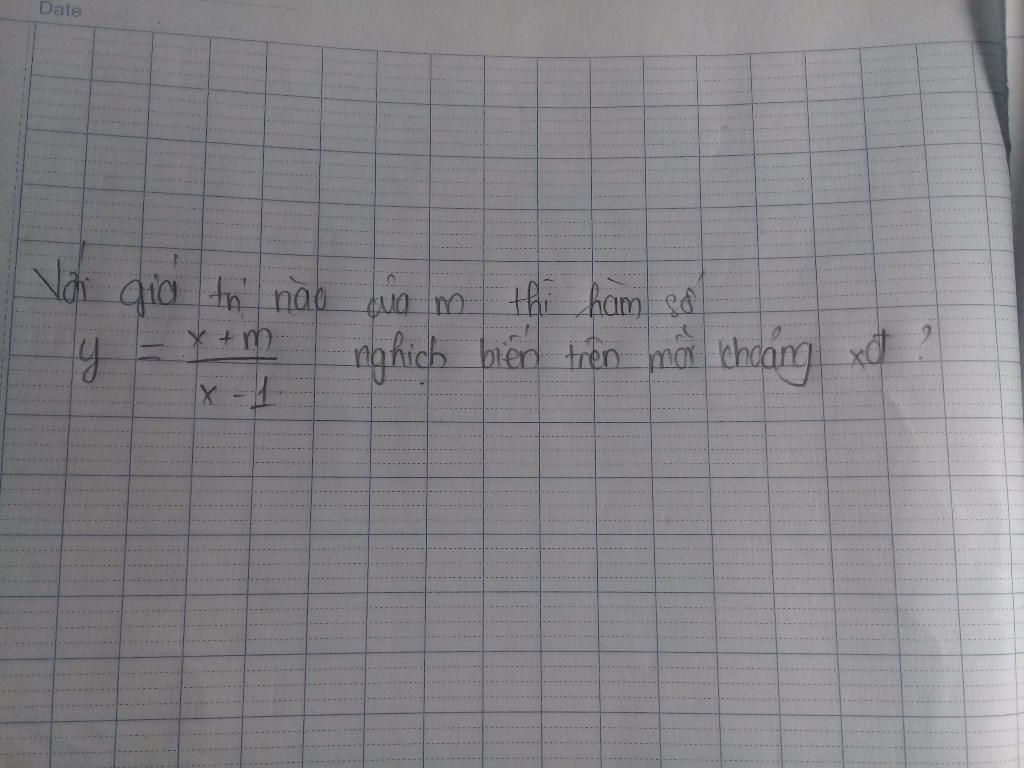 Date
Với giá trị nào của m thì hàm số
y = \frac{x+m}{x-1} nghịch biến trên mỗi khoảng xđ?